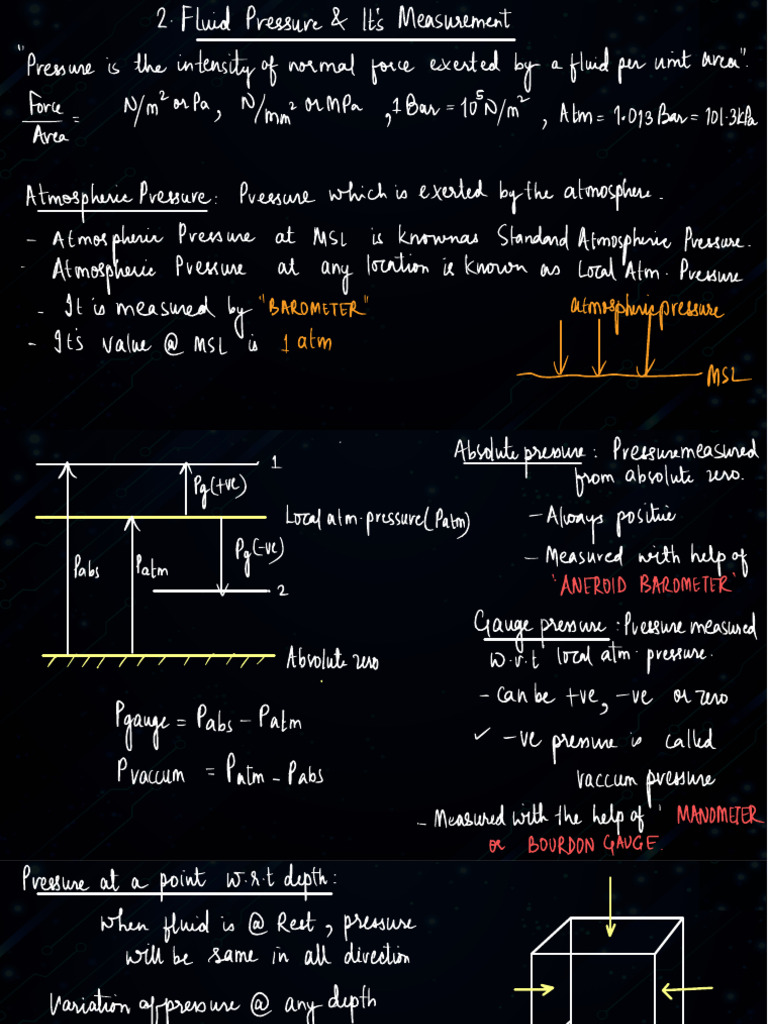 2. Fluid Pressure & It's Measurement
"Pressure is the intensity of normal force exerted by a fluid per unit area".
Force/Area = N/m² or Pa, N/mm² or MPa, 1 Bar = 10⁵ N/m², Atm = 1.013 Bar = 101.3 kPa
Atmospheric Pressure: Pressure which is exerted by the atmosphere.
- Atmospheric Pressure at MSL is known as Standard Atmospheric Pressure.
- Atmospheric Pressure at any location is known as Local Atm. Pressure
- It is measured by "BAROMETER"
- It's value @ MSL is 1 atm
atmospheric pressure
MSL
1
Pg(+ve)
Local atm. pressure (Patm)
Pg(-ve)
Pabs
Patm
2
Absolute zero
Pgauge = Pabs - Patm
Pvaccum = Patm - Pabs
Absolute pressure: Pressure measured
from absolute zero.
- Always positive
- Measured with help of
'ANEROID BAROMETER'
Gauge pressure: Pressure measured
w.r.t local atm. pressure.
- Can be +ve, -ve or zero
✓ -ve pressure is called
vaccum pressure
- Measured with the help of ' MANOMETER
or BOURDON GAUGE.
Pressure at a point w.r.t depth:
When fluid is @ Rest, pressure
will be same in all direction
Variation of pressure @ any depth